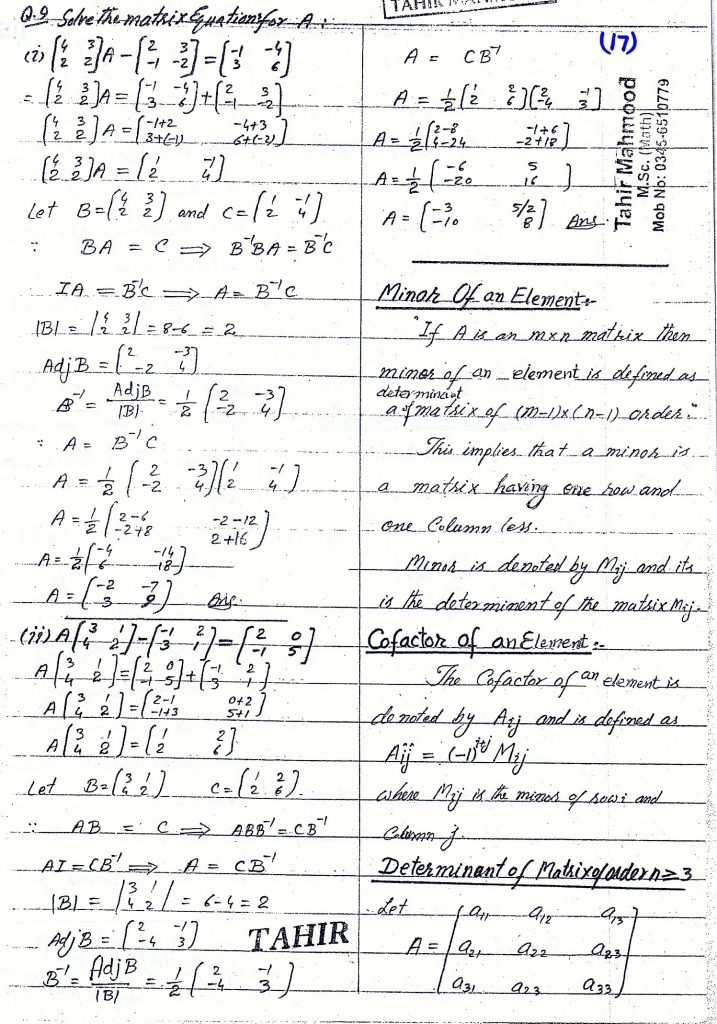 Q.9 Solve the matrix Equations for A :
(i) [4 3; 2 2]A - [2 3; -1 -2] = [-1 -4; 3 6]
= [4 3; 2 2]A = [-1 -4; 3 6] + [2 3; -1 -2]
[4 3; 2 2]A = [-1+2 -4+3; 3+(-1) 6+(-2)]
[4 3; 2 2]A = [1 -1; 2 4]
Let B = [4 3; 2 2] and C = [1 -1; 2 4]
∵ BA = C ⟹ B⁻¹BA = B⁻¹C
IA = B⁻¹C ⟹ A = B⁻¹C
|B| = |4 3; 2 2| = 8-6 = 2
Adj B = [2 -3; -2 4]
B⁻¹ = AdjB/|B| = 1/2 [2 -3; -2 4]
∵ A = B⁻¹C
A = 1/2 [2 -3; -2 4][1 -1; 2 4]
A = 1/2 [2-6 -2-12; -2+8 2+16]
A = 1/2 [-4 -14; 6 18]
A = [-2 -7; 3 9] Ans.
(ii) A[3 1; 4 2] - [-1 2; 3 1] = [2 0; -1 5]
A[3 1; 4 2] = [2 0; -1 5] + [-1 2; 3 1]
A[3 1; 4 2] = [2-1 0+2; -1+3 5+1]
A[3 1; 4 2] = [1 2; 2 6]
Let B = [3 1; 4 2] C = [1 2; 2 6].
∵ AB = C ⟹ ABB⁻¹ = CB⁻¹
AI = CB⁻¹ ⟹ A = CB⁻¹
|B| = |3 1; 4 2| = 6-4 = 2
Adj B = [2 -1; -4 3]
TAHIR
B⁻¹ = AdjB/|B| = 1/2 [2 -1; -4 3]
(17)
A = CB⁻¹
A = 1/2 [1 2; 2 6][2 -1; -4 3]
A = 1/2 [2-8 -1+6; 4-24 -2+18]
A = 1/2 [-6 5; -20 16]
A = [-3 5/2; -10 8] Ans.
Tahir Mahmood
M.Sc. (Math)
Mob No: 0345-6510779
Minor Of an Element:-
"If A is an m×n matrix then
minor of an element is defined as
determinant
a of matrix of (m-1)×(n-1) order."
This implies that a minor is
a matrix having one row and
one Column less.
Minor is denoted by Mij and its
is the determinent of the matrix Mij.
Cofactor of an Element :-
The Cofactor of an element is
denoted by Aij and is defined as
Aij = (-1)^i+j Mij
where Mij is the minor of row i and
Column j.
Determinant of Matrix of order n≥3
Let
A = [a11 a12 a13; a21 a22 a23; a31 a23 a33]